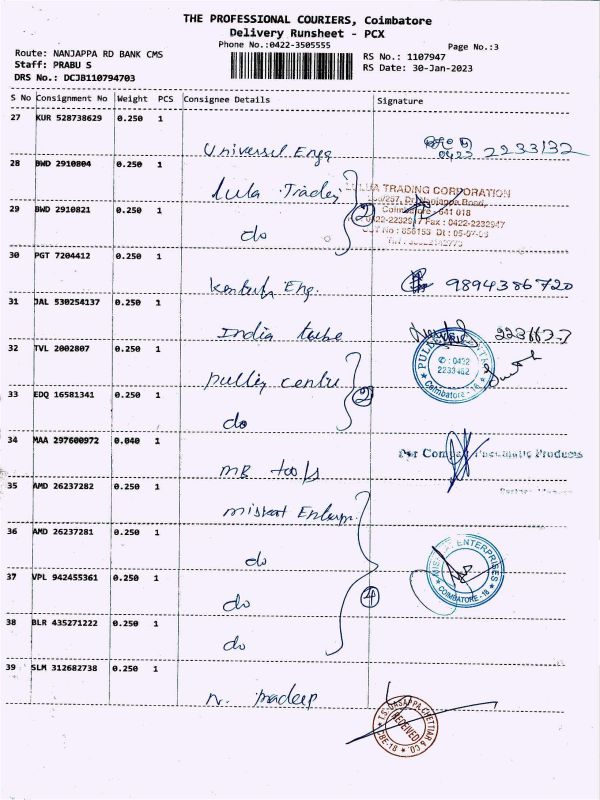 THE PROFESSIONAL COURIERS, Coimbatore
Delivery Runsheet - PCX
Phone No.:0422-3505555
Page No.:3
Route: NANJAPPA RD BANK CMS
Staff: PRABU S
DRS No.: DCJB110794703
RS No.: 1107947
RS Date: 30-Jan-2023
S No Consignment No Weight PCS Consignee Details Signature
27 KUR 528738629 0.250 1
Universal Engg 0422 2233132
28 BWD 2910804 0.250 1
Lulu Trading
LULUA TRADING CORPORATION
Coimbatore - 641 018
0422-2232947 Fax : 0422-2232947
29 BWD 2910821 0.250 1
do
②
30 PGT 7204412 0.250 1
Eng. 9894386720
31 JAL 530254137 0.250 1
India tube
32 TVL 2002807 0.250 1
pulley centre
0422
2233452
Coimbatore - 18
33 EDQ 16581341 0.250 1
do
②
34 MAA 297600972 0.040 1
MR tools
Pneumatic Products
35 AMD 26237282 0.250 1
36 AMD 26237281 0.250 1
do
ENTERPRISES
COIMBATORE - 18
37 VPL 942455361 0.250 1
do
④
38 BLR 435271222 0.250 1
do
39 SLM 312682738 0.250 1
N. pradeep
T.S. DASAPPA CHETTIAR & CO.
RECEIVED
CBE-18